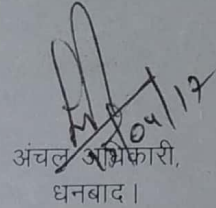 04/17
अंचल अधिकारी,
धनबाद।